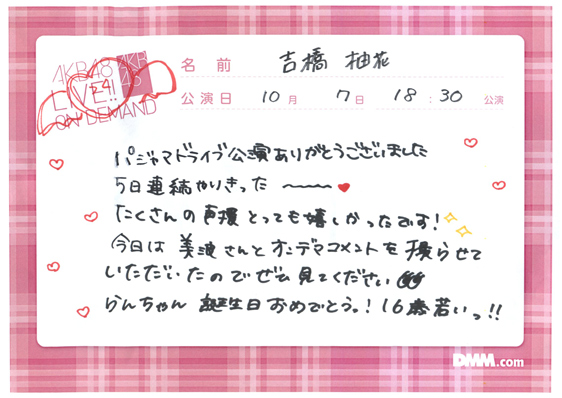 AKB48
LIVE!!
ON DEMAND
AKB
48
名前 吉橋 柚花
公演日 10月 7日 18:30 公演
パジャマドライブ公演ありがとうございました
5日連続やりきった〜
たくさんの声援とっても嬉しかったです!
今日は 美波さんとオンデマコメントを撮らせて
いただいたのでぜひ見てください
らんちゃん 誕生日おめでとうっ!16歳若いっ!!
DMM.com